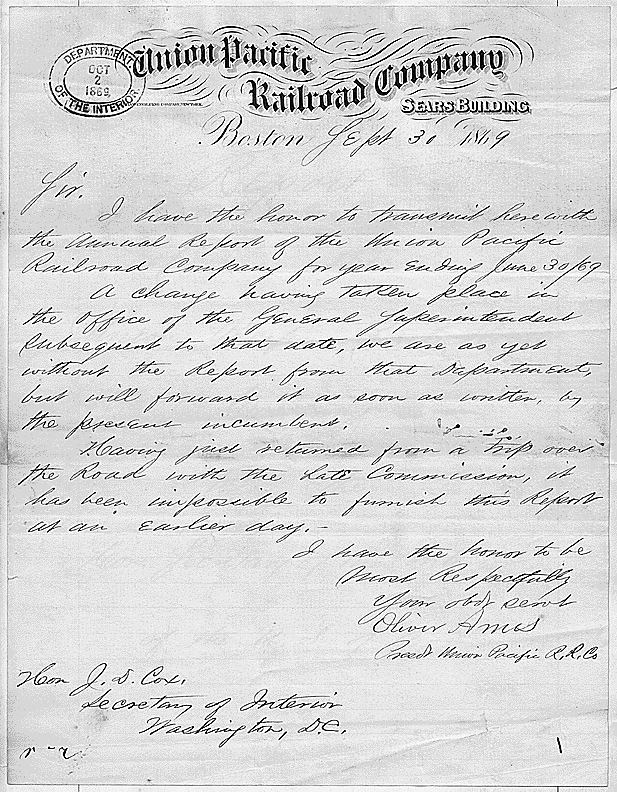 Union Pacific
Railroad Company
SEARS BUILDING
DEPARTMENT
OCT
2
1869
OF THE INTERIOR
Boston Sept 30 1869
Sir.
I have the honor to transmit herewith
the Annual Report of the Union Pacific
Railroad Company for year Ending June 30/69
A change having taken place in
the office of the General Superintendent
Subsequent to that date, we are as yet
without the Report from that Department,
but will forward it as soon as written, by
the present incumbent.
Having just returned from a trip over
the Road with the Late Commission, it
has been impossible to furnish this Report
at an Earlier day.-
I have the honor to be
Most Respectfully
Your obdt servt
Oliver Ames
Presdt Union Pacific R.R. Co
Hon J. D. Cox.
Secretary of Interior
Washington, D.C.
1